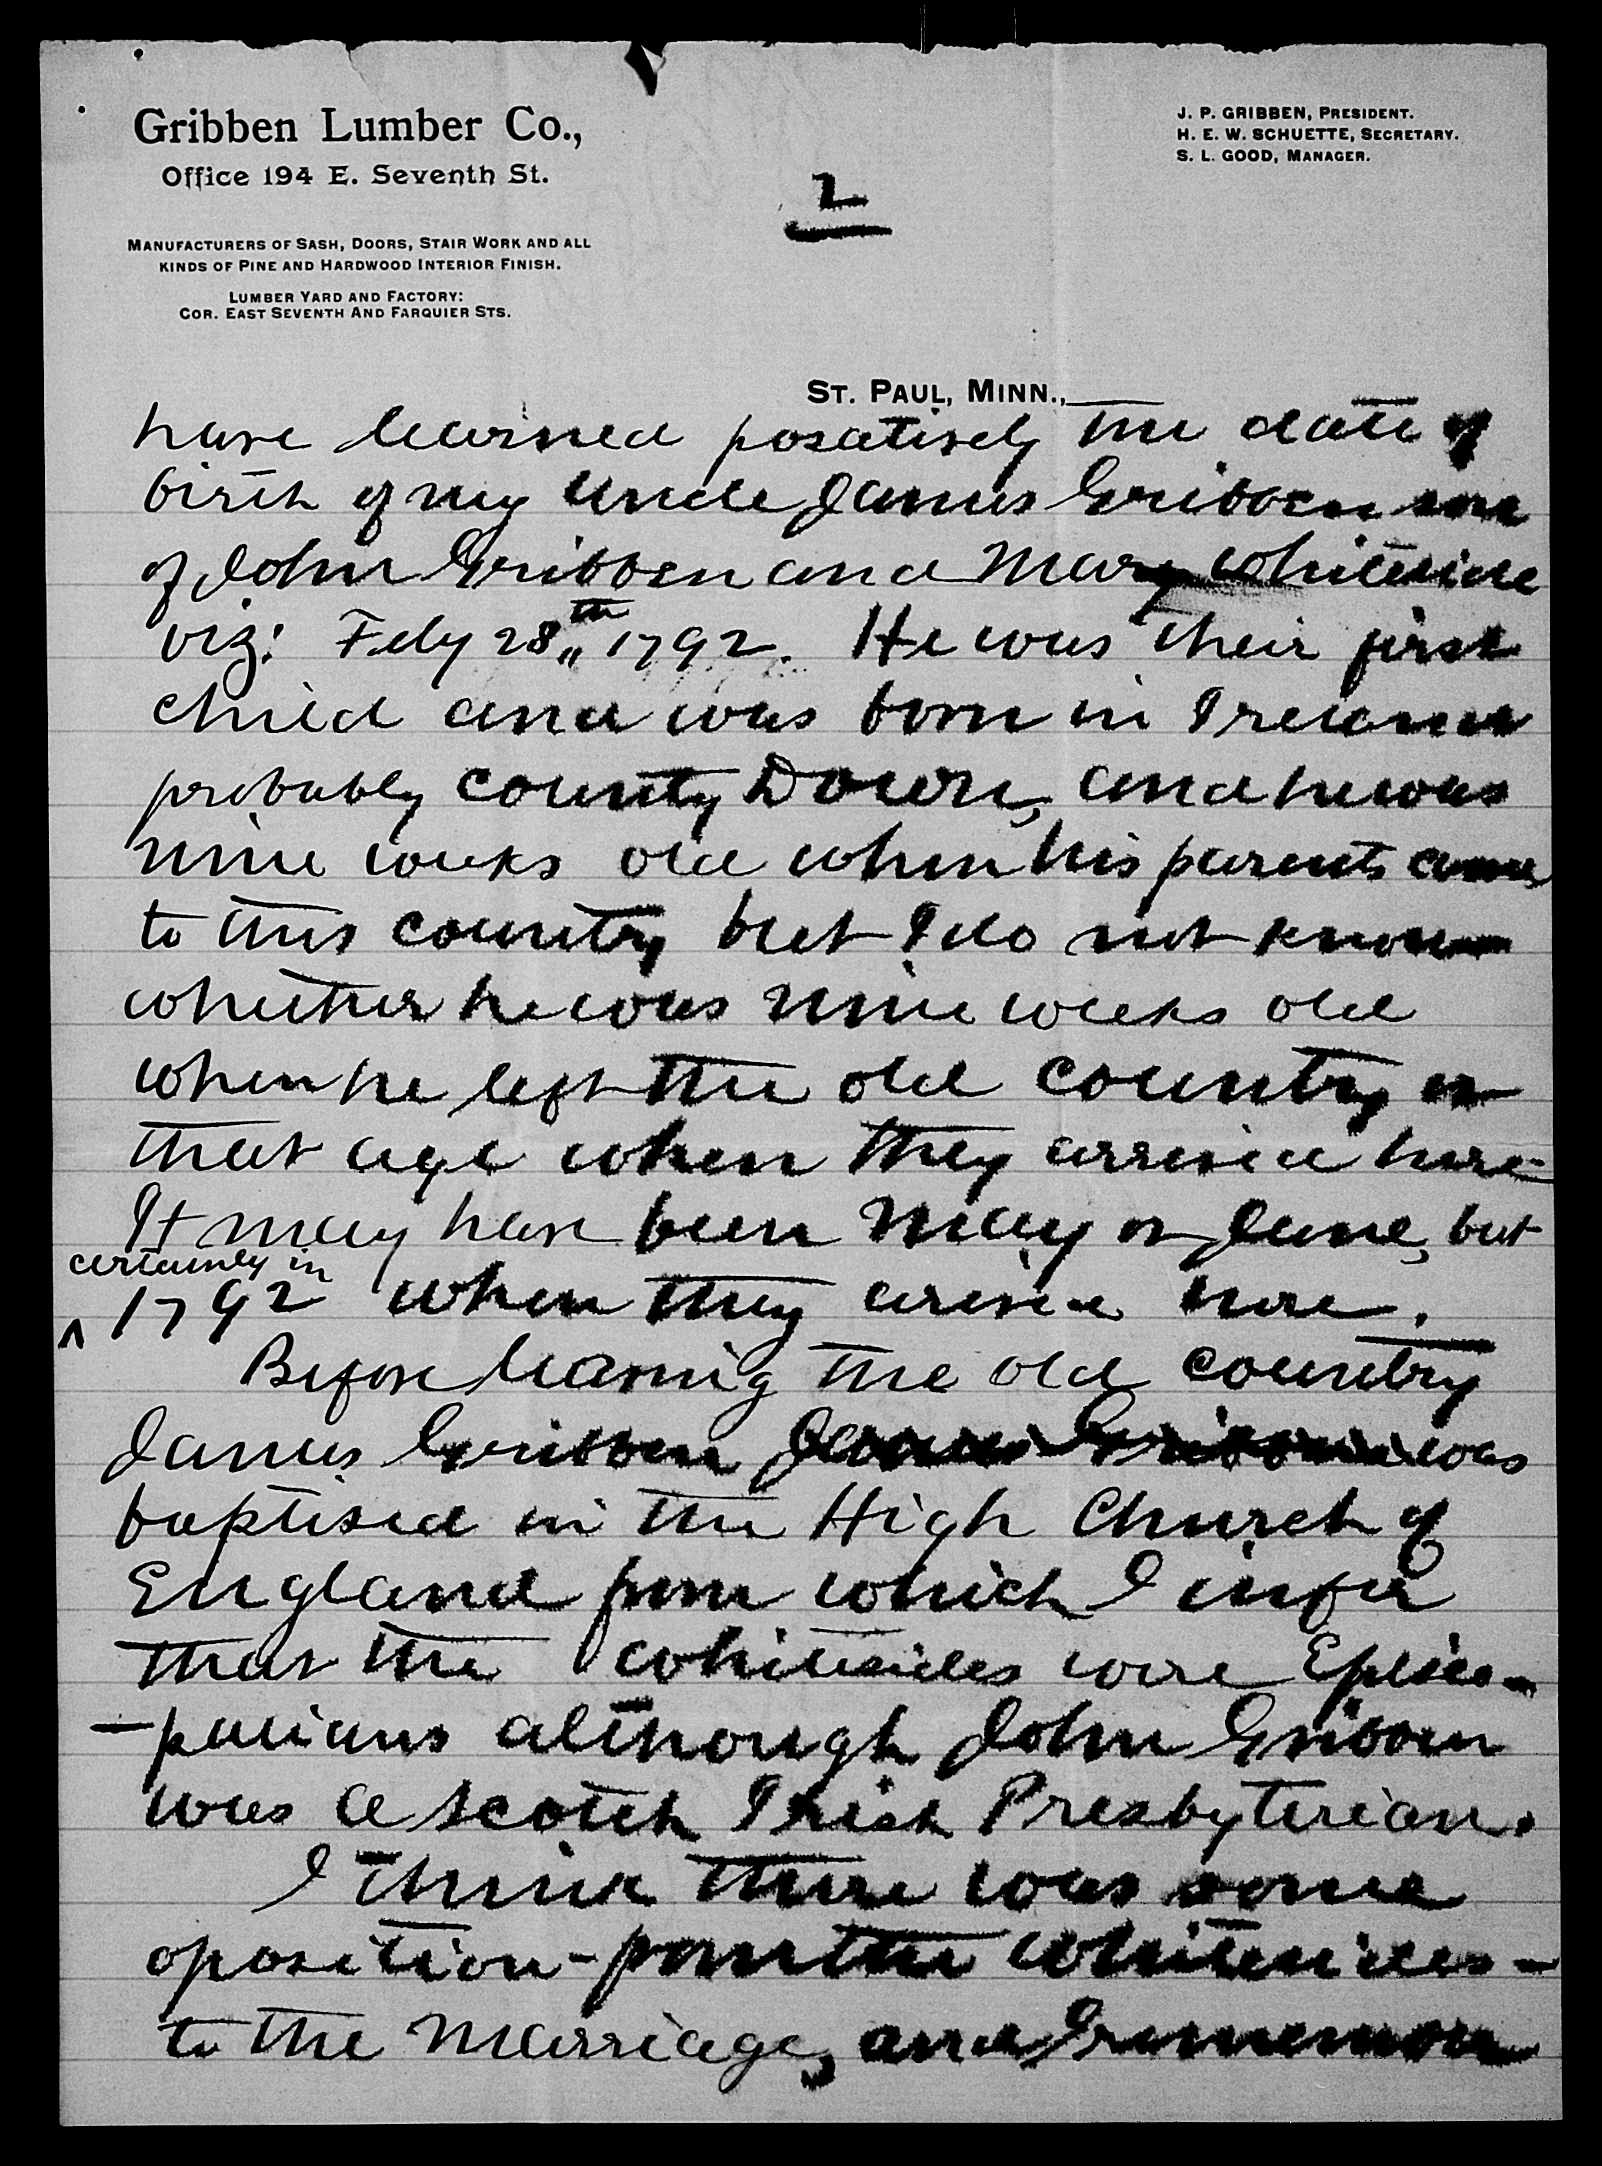 Gribben Lumber Co.,
Office 194 E. Seventh St.
Manufacturers of Sash, Doors, Stair Work and all
kinds of Pine and Hardwood Interior Finish.
Lumber Yard and Factory:
Cor. East Seventh And Farquier Sts.
J. P. Gribben, President.
H. E. W. Schuette, Secretary.
S. L. Good, Manager.
2
St. Paul, Minn.,
have learned posatively the date of
birth of my Uncle James Gribben son
of John Gribben and Mary Whiteside
viz: Feby 28th 1792. He was their first
child and was born in Ireland
probably county Down, and he was
nine weeks old when his parents came
to this country but I do not know
whether he was nine weeks old
when he left the old country or
that age when they arrived here
It may have been May or June, but
certainly in
^ 1792 when they arived here.
Before leaving the old country
James Gribben James Gribben was
baptised in the High Church of
England from which I infer
that the Whitesides were Episco-
-palians although John Gribben
was a Scotch Irish Presbyterian.
I think there was some
oposition - from the Whitesides -
to the Marriage, and